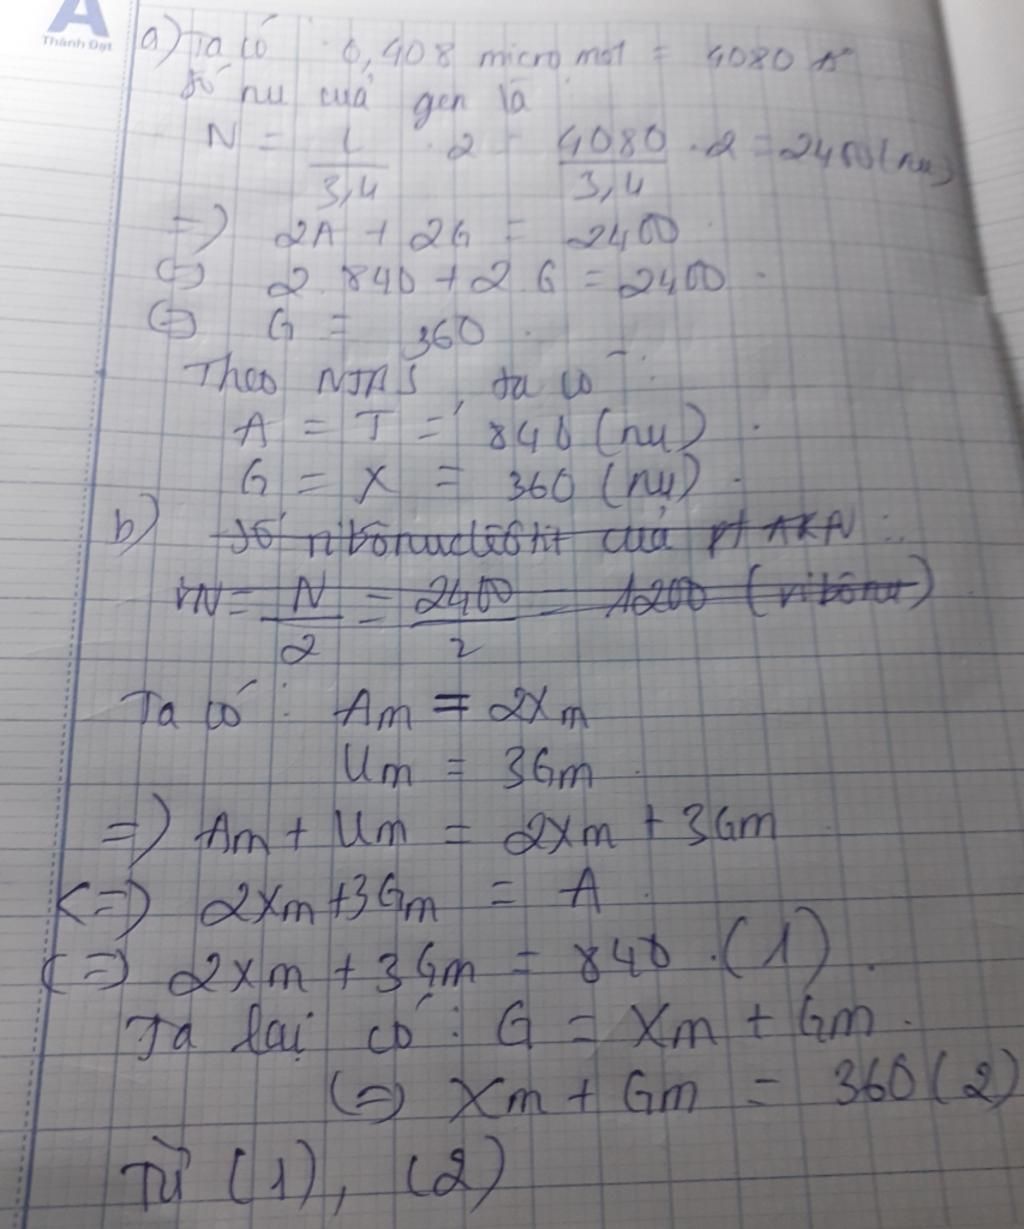 A
Thành Đạt
a) Ta có : 0,408 micromet = 4080 A°
Số nu của gen là
N = L/3,4 . 2 = 4080/3,4 . 2 = 2400 (nu)
=> 2A + 2G = 2400
(=) 2.840 + 2G = 2400
(=) G = 360
Theo NTBS, ta có :
A = T = 840 (nu)
G = X = 360 (nu)
b) Số ribônuclêôtit của pt ARN :
rN = N/2 = 2400/2 = 1200 (ribônu)
Ta có : Am = 2Xm
Um = 3Gm
=> Am + Um = 2Xm + 3Gm
<=> 2Xm + 3Gm = A
(=) 2Xm + 3Gm = 840 (1)
Ta lại có : G = Xm + Gm
(=) Xm + Gm = 360 (2)
Từ (1), (2)